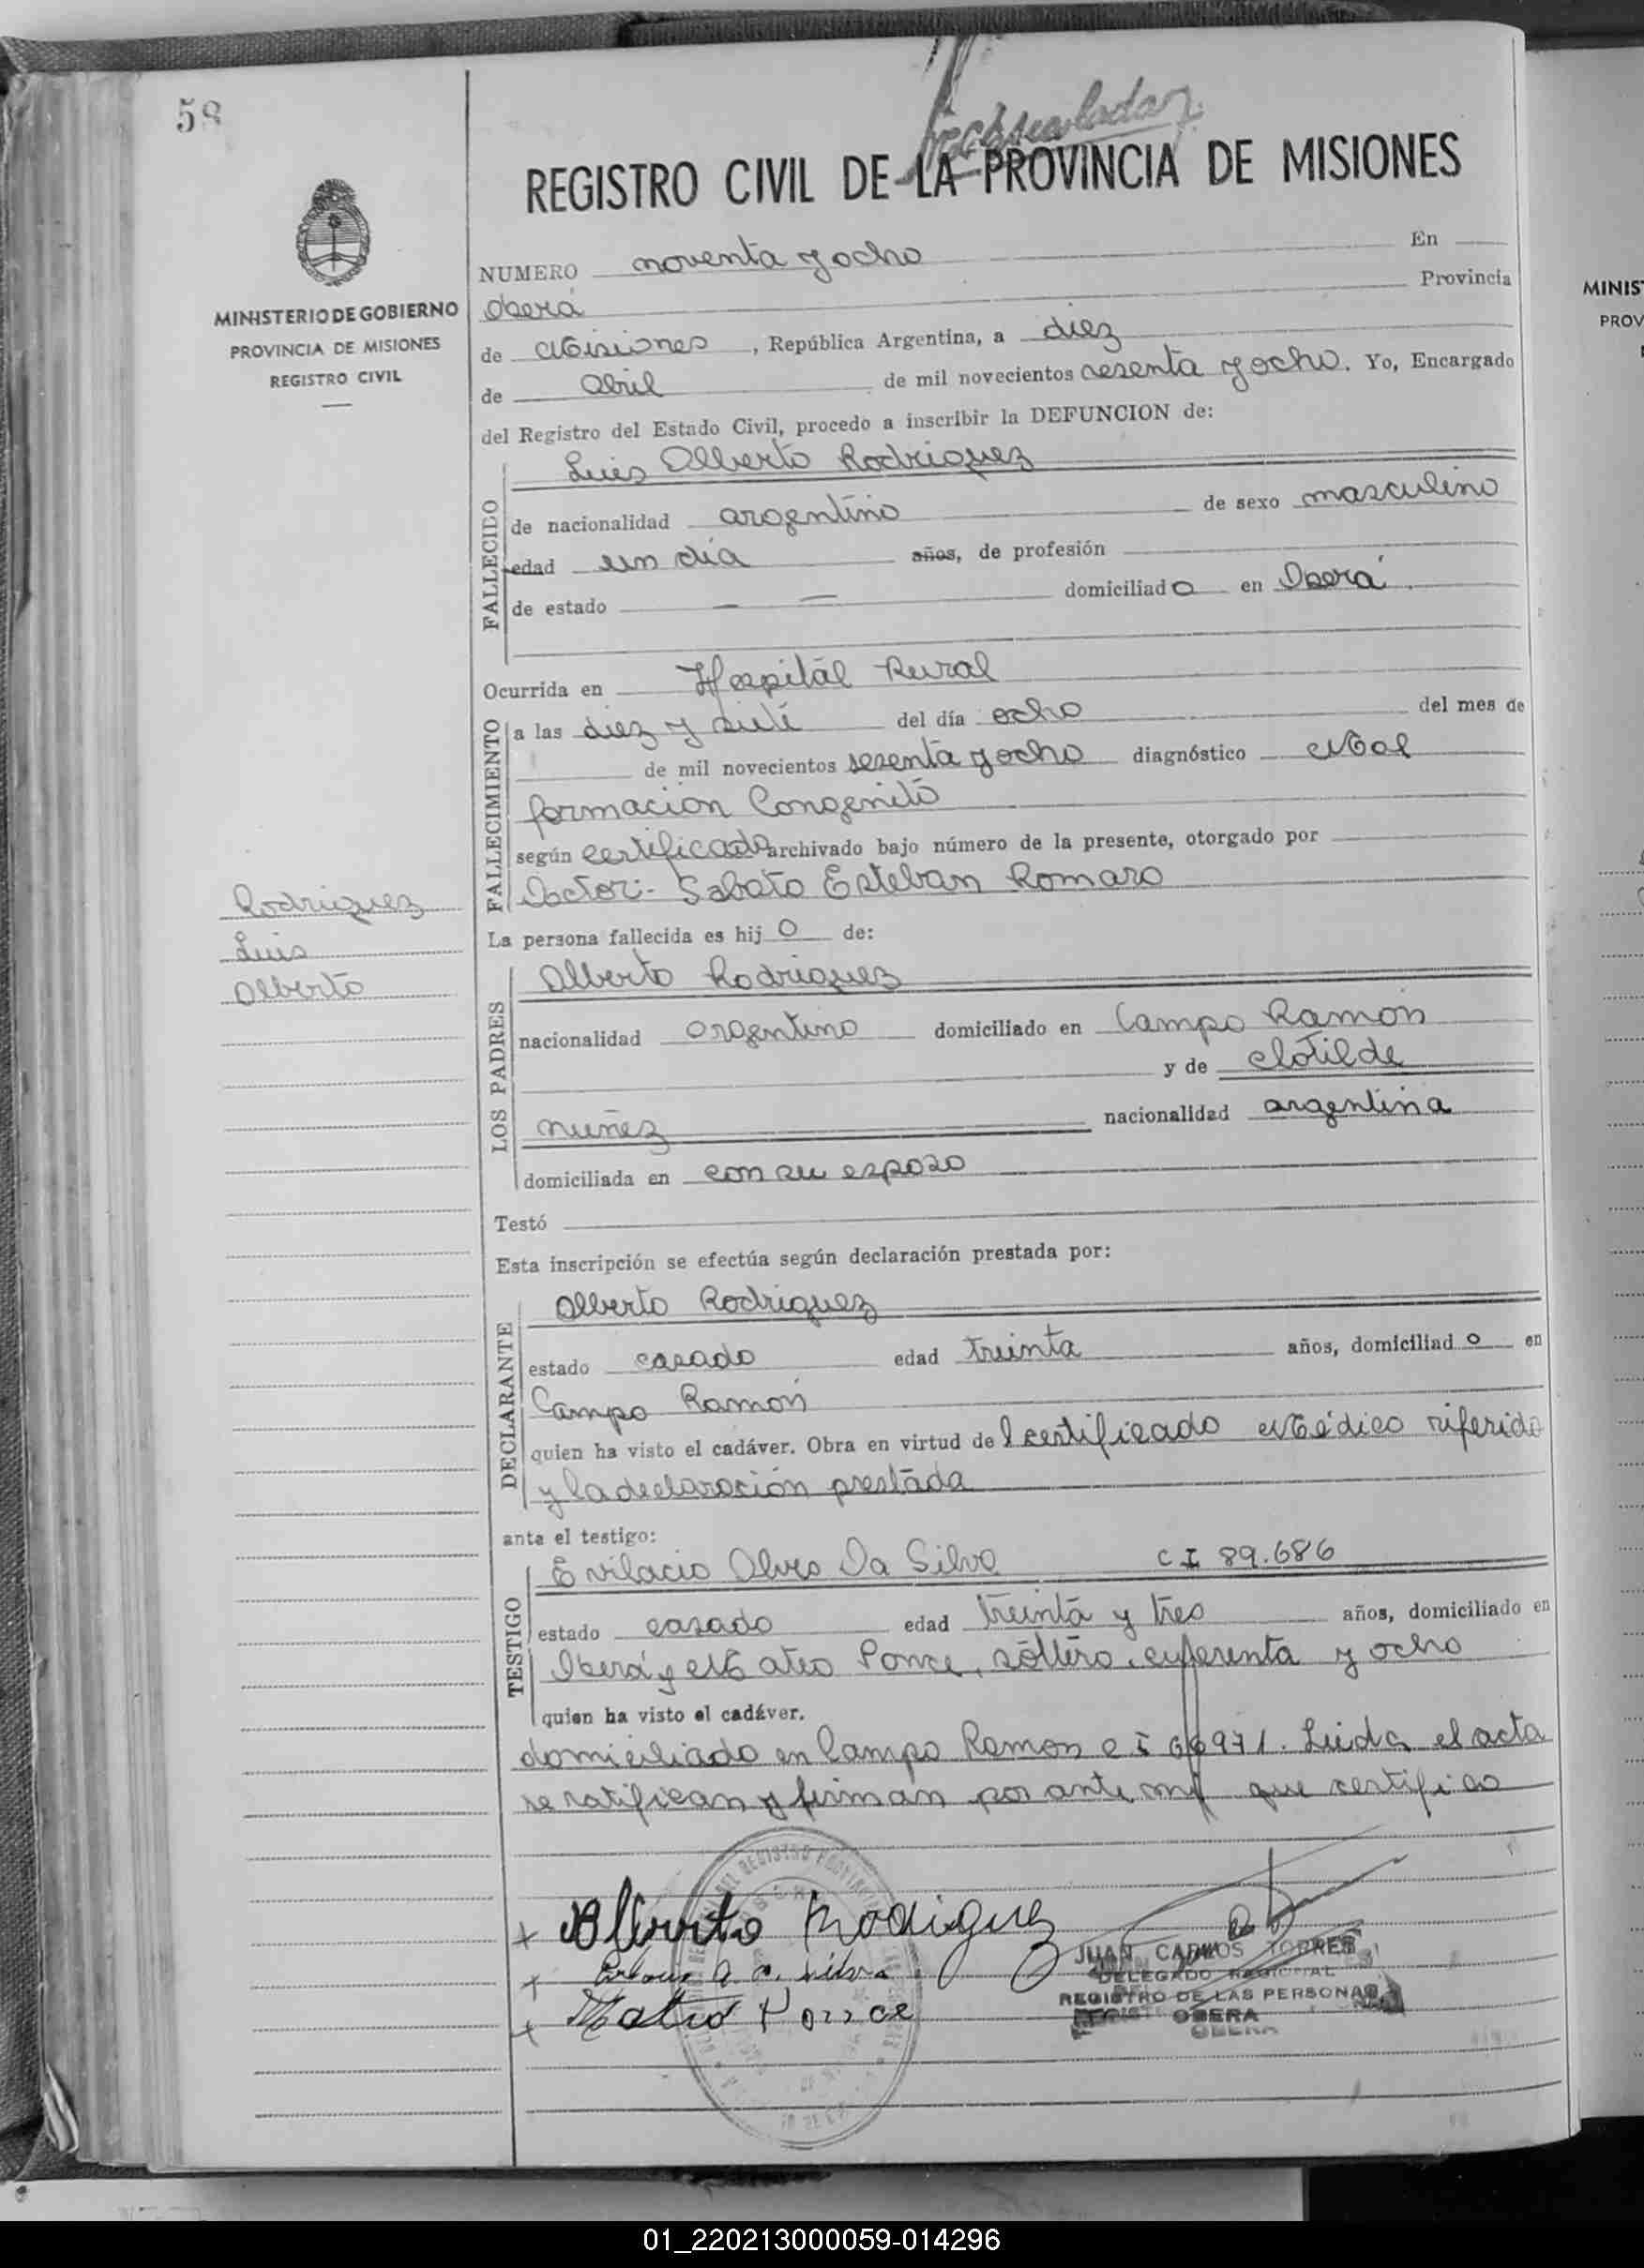 58
REGISTRO CIVIL DE LA PROVINCIA DE MISIONES
MINISTERIO DE GOBIERNO
PROVINCIA DE MISIONES
REGISTRO CIVIL
NUMERO noventa y ocho En
Oberá Provincia
de Misiones, República Argentina, a diez
de Abril de mil novecientos sesenta y ocho. Yo, Encargado
del Registro del Estado Civil, procedo a inscribir la DEFUNCION de:
Luis Alberto Rodriguez
FALLECIDO
de nacionalidad argentino de sexo masculino
edad un día años, de profesión
de estado — — domiciliado en Oberá.
Ocurrida en Hospital Rural
FALLECIMIENTO
a las diez y siete del día ocho del mes de
de mil novecientos sesenta y ocho diagnóstico Mal
formación Congenito
según certificado archivado bajo número de la presente, otorgado por
Doctor:- Sabato Esteban Romaro
Rodriguez
Luis
Alberto
La persona fallecida es hijo de:
LOS PADRES
Alberto Rodriguez
nacionalidad argentino domiciliado en Campo Ramón
y de Clotilde
nuñez nacionalidad argentina
domiciliada en con su esposo
Testó
Esta inscripción se efectúa según declaración prestada por:
DECLARANTE
Alberto Rodriguez
estado casado edad treinta años, domiciliado en
Campo Ramón
quien ha visto el cadáver. Obra en virtud del certificado Médico riferido
y la declaración prestada
ante el testigo:
TESTIGO
Evilacio Alves Da Silva C I 89.686
estado casado edad treinta y tres años, domiciliado en
Oberá y Mateo Ponce, soltero, cuarenta y ocho
quien ha visto el cadáver.
domiciliado en Campo Ramon c I 66971. Leida el acta
se ratifican y firman por ante mi que certifico
+ Alberto Rodriguez
+
+ Mateo Ponce
JUAN CARLOS TORRES
DELEGADO REGIONAL
REGISTRO DE LAS PERSONAS
OBERA
OBERA
MINIS
PROV
01_220213000059-014296